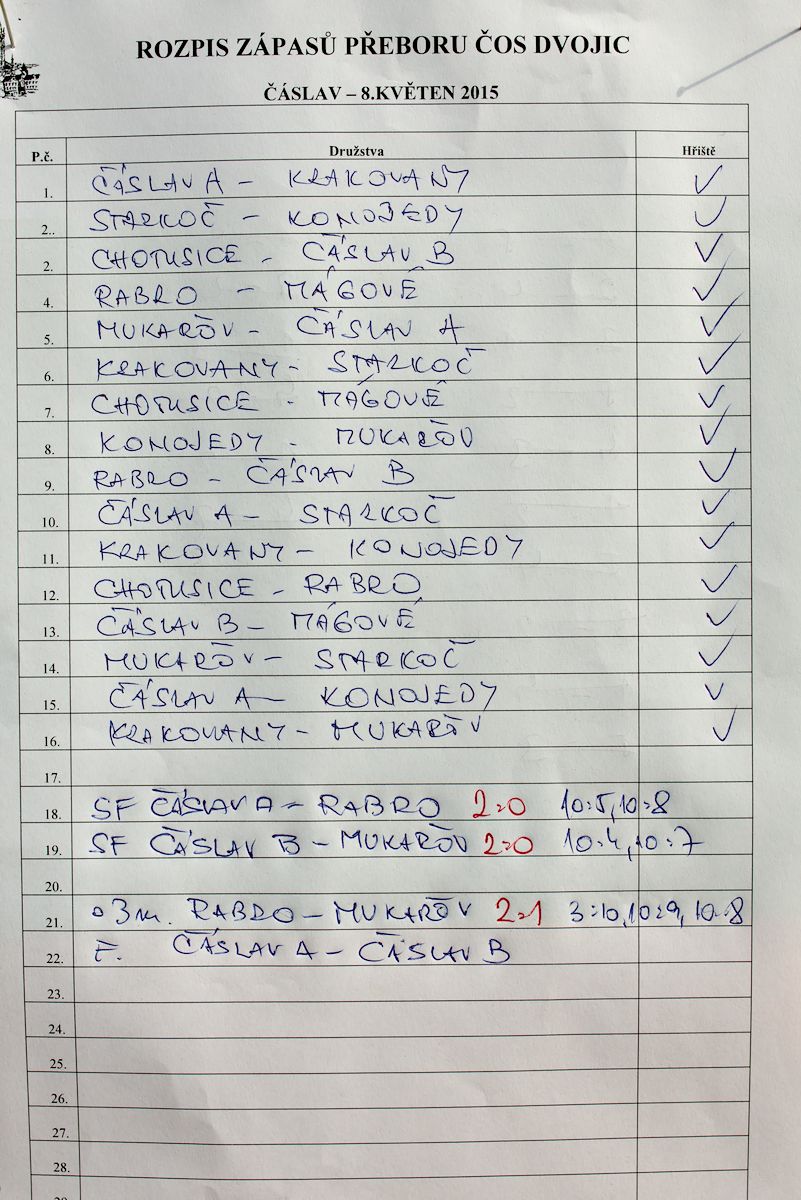 ROZPIS ZÁPASŮ PŘEBORU ČOS DVOJIC
ČÁSLAV – 8.KVĚTEN 2015
P.č. Družstva Hřiště
1. ČÁSLAV A – KRAKOVANY ✓
2.. STARKOČ – KONOJEDY ✓
2. CHOTUSICE - ČÁSLAV B ✓
4. RABRO – MÁGOVÉ ✓
5. MUKAŘOV – ČÁSLAV A ✓
6. KRAKOVANY – STARKOČ ✓
7. CHOTUSICE - MÁGOVÉ ✓
8. KONOJEDY - MUKAŘOV ✓
9. RABRO – ČÁSLAV B ✓
10. ČÁSLAV A – STARKOČ ✓
11. KRAKOVANY – KONOJEDY ✓
12. CHOTUSICE – RABRO ✓
13. ČÁSLAV B – MÁGOVÉ ✓
14. MUKAŘOV – STARKOČ ✓
15. ČÁSLAV A – KONOJEDY ✓
16. KRAKOVANY – MUKAŘOV ✓
17.
18. SF ČÁSLAV A – RABRO 2:0 10:5, 10:8
19. SF ČÁSLAV B – MUKAŘOV 2:0 10:4, 10:7
20.
21. o 3 m. RABRO – MUKAŘOV 2:1 3:10, 10:9, 10:8
22. F. ČÁSLAV A – ČÁSLAV B
23.
24.
25.
26.
27.
28.